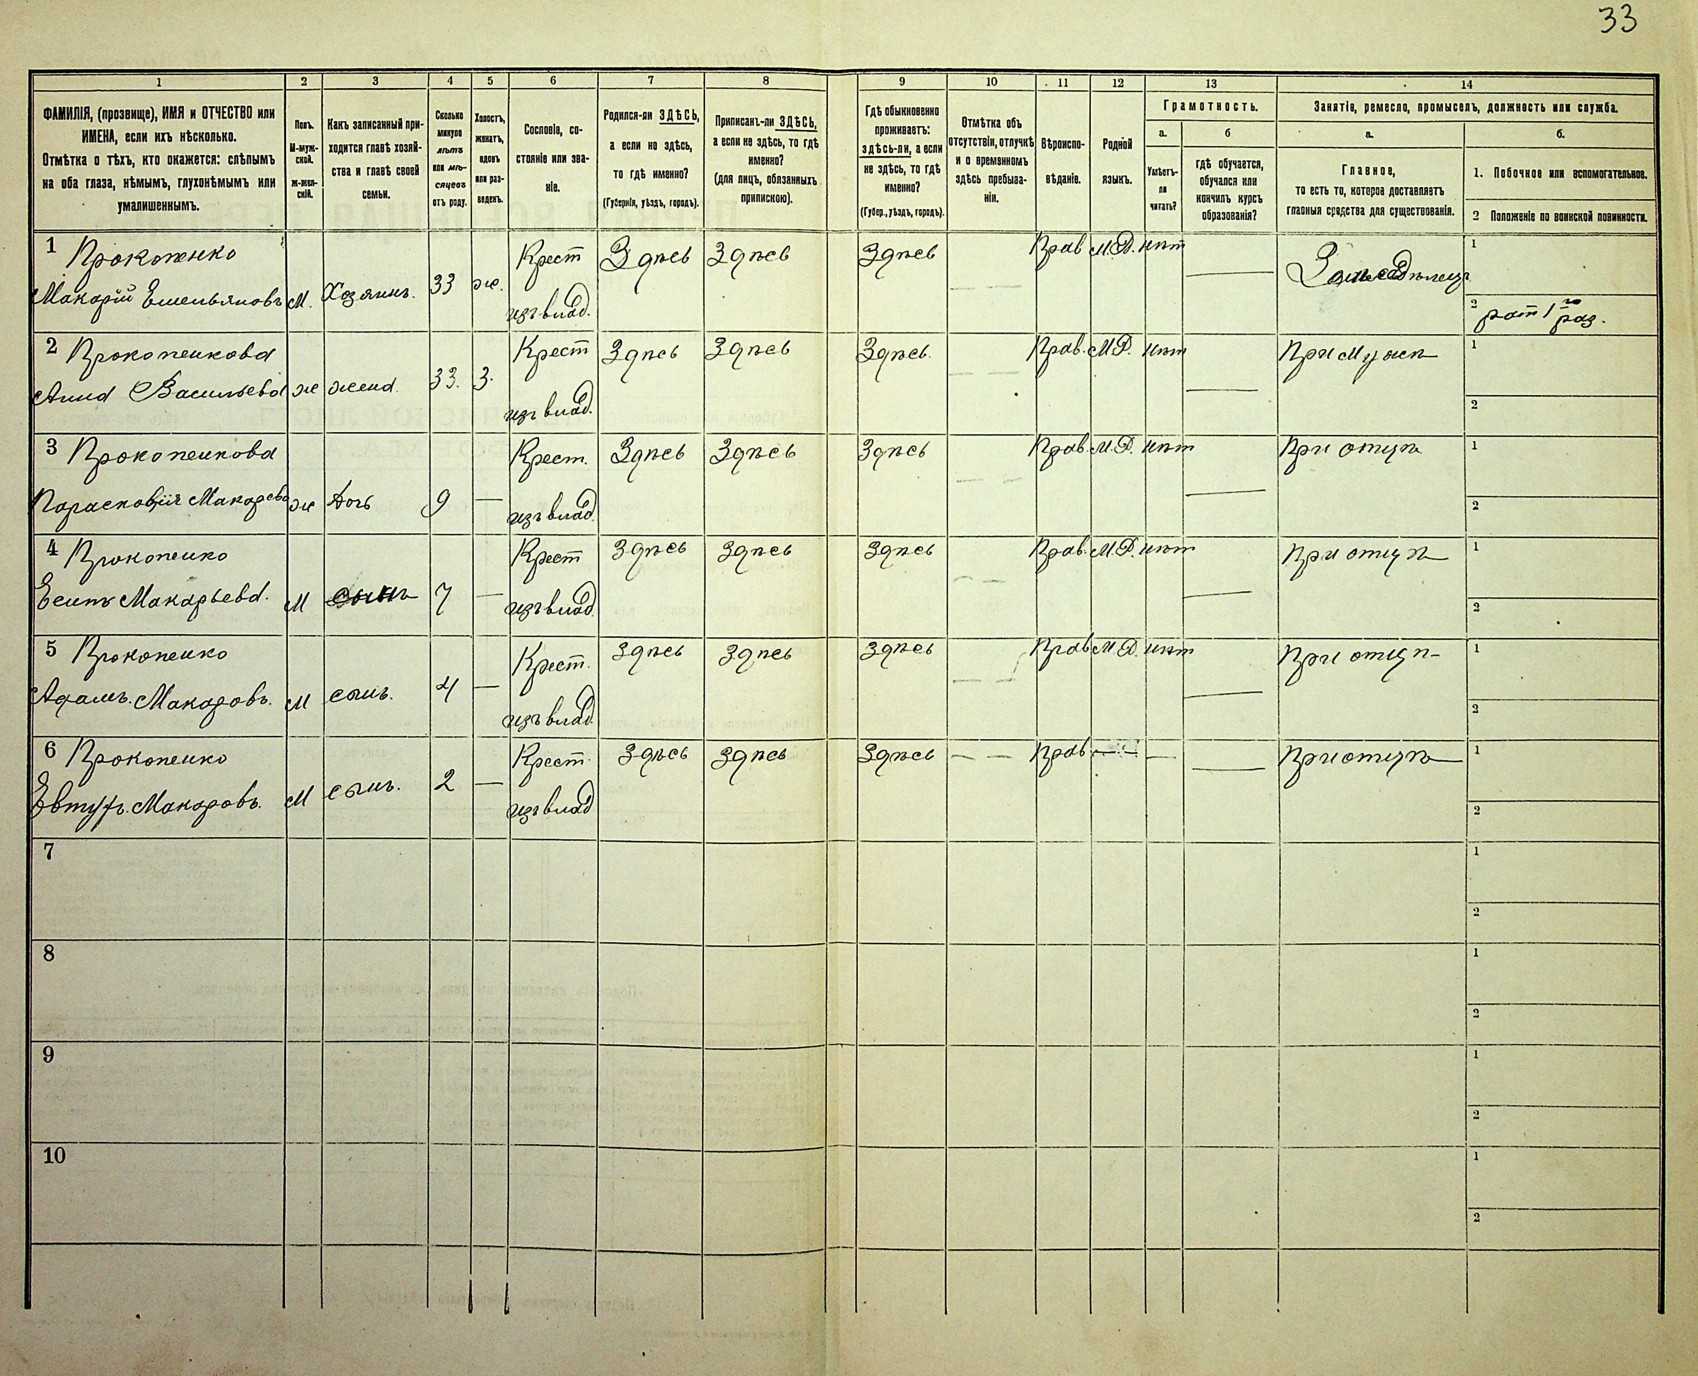 33
1 2 3 4 5 6 7 8 9 10 11 12 13 14
ФАМИЛІЯ, (прозвище), ИМЯ и ОТЧЕСТВО или
ИМЕНА, если ихъ нѣсколько.
Отмѣтка о тѣхъ, кто окажется: слѣпымъ
на оба глаза, нѣмымъ, глухонѣмымъ или
умалишеннымъ.
Полъ.
М-муж-
ской.
ж-жен-
скій.
Какъ записанный при-
ходится главѣ хозяй-
ства и главѣ своей
семьи.
Сколько
минуло
лѣтъ
или мѣ-
сяцевъ
отъ роду.
Холостъ,
женатъ,
вдовъ
или раз-
веденъ.
Сословіе, со-
стояніе или зва-
ніе.
Родился-ли ЗДѢСЬ,
а если не здѣсь,
то гдѣ именно?
(Губернія, уѣздъ, городъ).
Приписанъ-ли ЗДѢСЬ,
а если не здѣсь, то гдѣ
именно?
(для лицъ, обязанныхъ
припискою).
Гдѣ обыкновенно
проживаетъ:
здѣсь-ли, а если
не здѣсь, то гдѣ
именно?
(Губер., уѣздъ, городъ).
Отмѣтка объ
отсутствіи, отлучкѣ
и о временномъ
здѣсь пребыва-
ніи.
Вѣроиспо-
вѣданіе.
Родной
языкъ.
Грамотность.
а.
Умѣетъ-
ли
читать?
б
гдѣ обучается,
обучался или
кончилъ курсъ
образованія?
Занятіе, ремесло, промыселъ, должность или служба.
а.
Главное,
то есть то, которое доставляетъ
главныя средства для существованія.
б.
1. Побочное или вспомогательное.
2 Положеніе по воинской повинности.
1 Прокопенко Крест Здѣсь Здѣсь Здѣсь Прав М.Р. нѣт Земледѣлец 1
Макарій Емельяновъ М. Хозяинъ. 33 ж. изъ влад. 2 рат 1го раз.
2 Прокопенкова Крест Здѣсь Здѣсь Здѣсь Прав. М.Р. нѣт При мужѣ 1
Анна Васильева ж жена. 33. З. изъ влад. 2
3 Прокопенкова Крест. Здѣсь Здѣсь Здѣсь Прав. М.Р. нѣт При отцѣ 1
Парасковія Макарева ж дочь 9 — изъ влад. 2
4 Прокопенко Крест Здѣсь Здѣсь Здѣсь Прав. М.Р. нѣт При отцѣ 1
Есипъ Макарьева. М сынъ 7 — изъ влад 2
5 Прокопенко Крест. Здѣсь Здѣсь Здѣсь Прав М.Р. нѣт При отцѣ 1
Адамъ Макаровъ. М сынъ. 4 — изъ влад. 2
6 Прокопенко Крест. Здѣсь Здѣсь Здѣсь — — Прав — — При отцѣ 1
Макаровъ. М сынъ. 2 — изъ влад 2
7 1
2
8 1
2
9 1
2
10 1
2